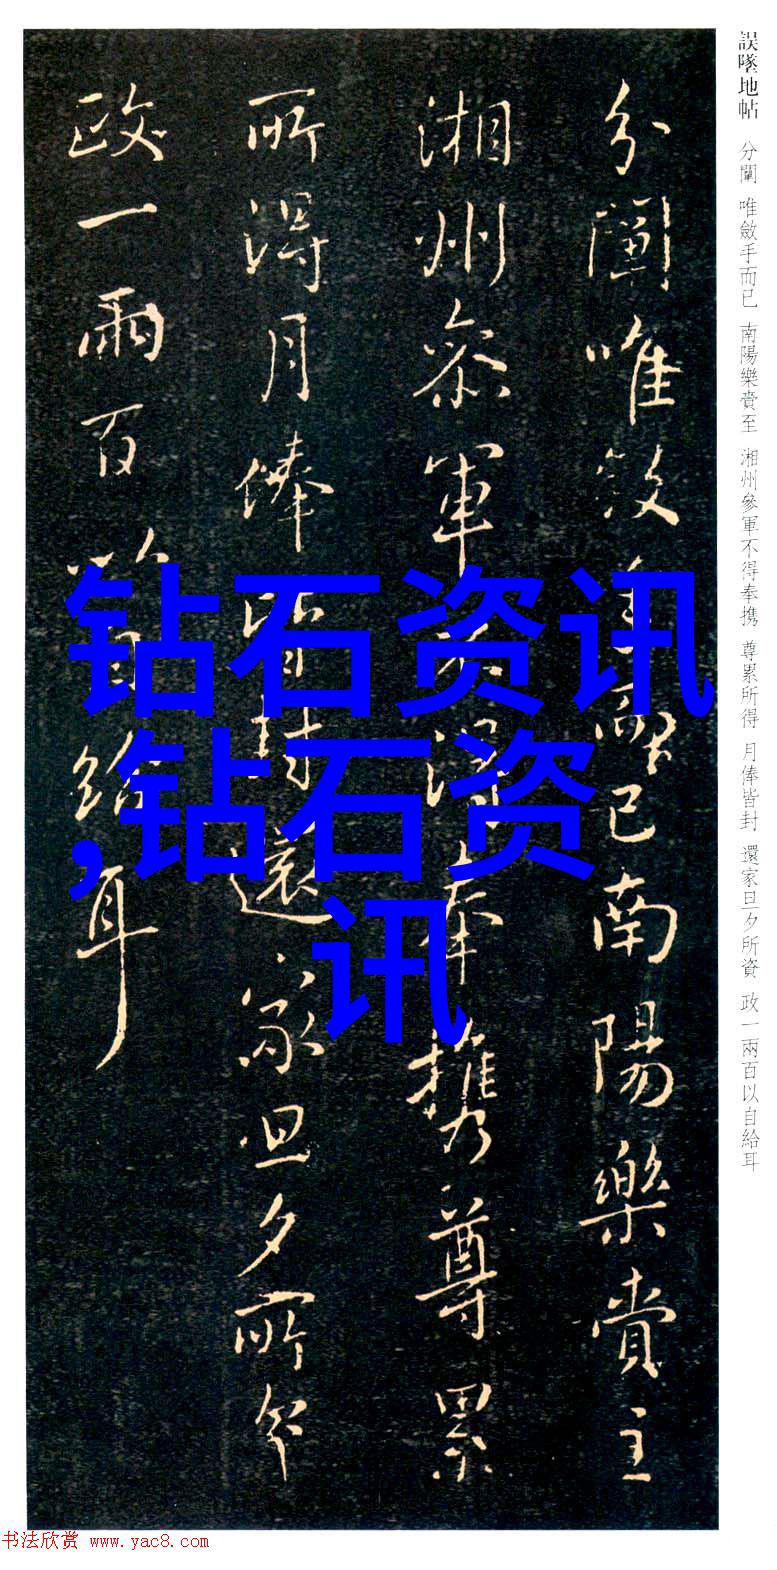 誤墜地帖 分闡 唯斂手而已 南陽樂賁至 湘州參軍不得奉携 尊累所得 月俸皆封 還家旦夕所資 政一兩百以自給耳
分闡唯斂手而已南陽樂賁至
湘州參軍不得奉携尊累
所得月俸皆封還家旦夕所資
政一兩百以自給耳
钻石资讯
,钻石资
讯
书法欣赏 www.yac8.com